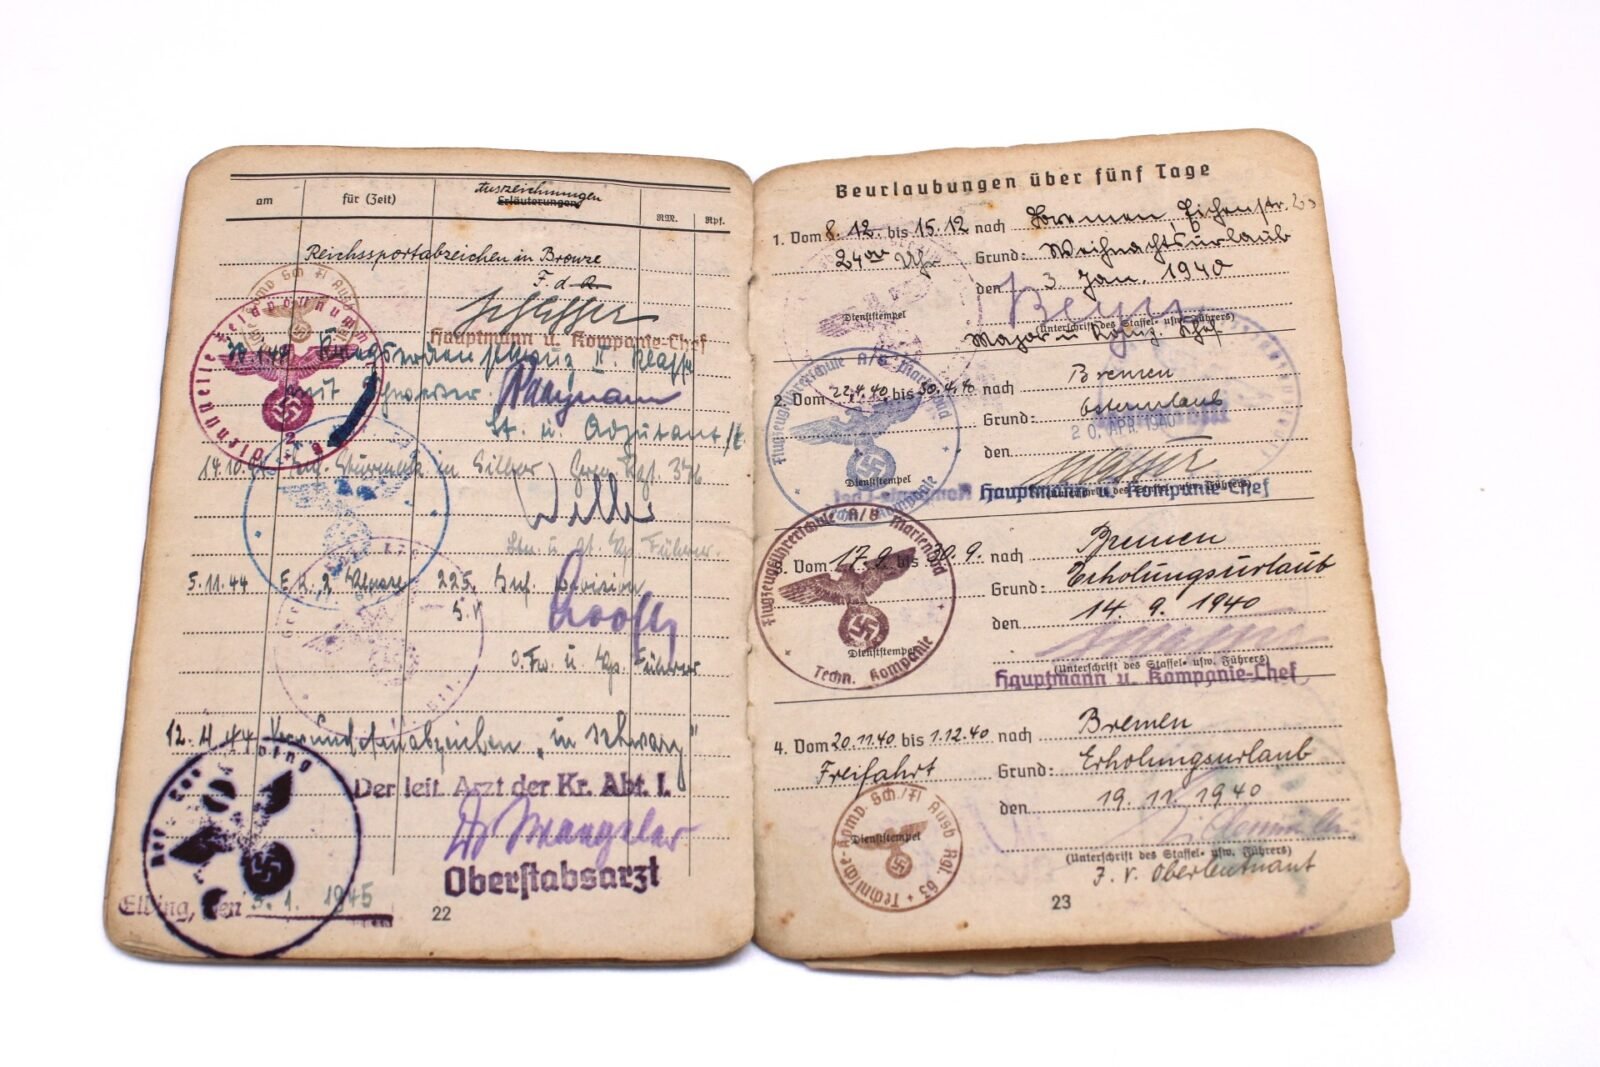 am
für (Zeit)
Auszeichnungen
Erläuterungen
RM.
Rpf.
Reichssportabzeichen in Bronze
F. d. R.
Hauptmann u. Kompanie-Chef
Kriegsverdienstkreuz II. Klasse
mit Schwerter
Lt. u. Adjutant
Dienststelle Feldpostnummer
14.10.44 Inf. Sturmabz. in Silber Gren. Rgt. 376
5.11.44 E.K. 2. Klasse 225. Inf. Division
O. Fw. u. Kp. Führer
12.11.44 Verwundetenabzeichen „in schwarz"
Der leit. Arzt der Kr. Abt. I.
Oberstabsarzt
Elbing, den 5. 1. 1945
22
Beurlaubungen über fünf Tage
1. Vom 8. 12. bis 15. 12 nach Bremen, Eichenstr.
24 00 Uhr Grund: Weihnachtsurlaub
den 3 Jan. 1940
Dienststempel
(Unterschrift des Staffel- usw. Führers)
2. Vom 22.4.40 bis 30.4.40 nach Bremen
Grund: Osterurlaub
den 20. APR. 1940
Flugzeugführerschule A/B Marienbad
Techn. Kompanie
Dienststempel
(Unterschrift des Staffel- usw. Führers)
Hauptmann u. Kompanie-Chef
3. Vom 17.9. bis 30.9. nach Bremen
Grund: Erholungsurlaub
den 14. 9. 1940
Flugzeugführerschule A/B Marienbad
Techn. Kompanie
Dienststempel
(Unterschrift des Staffel- usw. Führers)
Hauptmann u. Kompanie-Chef
4. Vom 20.11.40 bis 1.12.40 nach Bremen
Freifahrt Grund: Erholungsurlaub
den 19. 11. 1940
Technische-Komp. Sch./Fl Ausb Rgt. 63
Dienststempel
(Unterschrift des Staffel- usw. Führers)
J. V. Oberleutnant
23